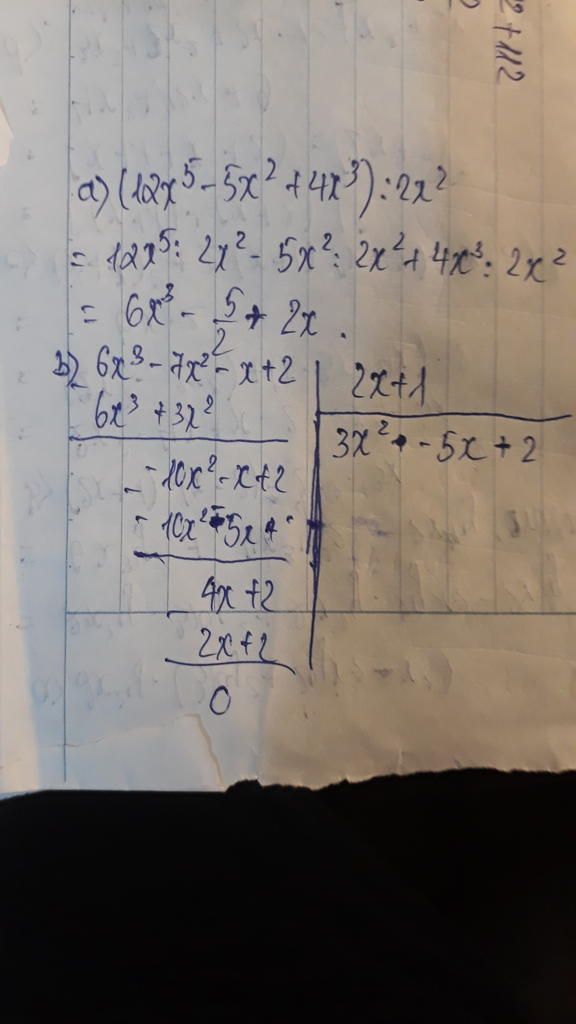 2+112
a) (12x⁵ - 5x² + 4x³) : 2x²
= 12x⁵ : 2x² - 5x² : 2x² + 4x³ : 2x²
= 6x³ - 5/2 + 2x.
b) 6x³ - 7x² - x + 2 | 2x+1
6x³ + 3x² | 3x² - 5x + 2
- -10x² - x + 2
-10x² - 5x
4x + 2
2x + 2
0